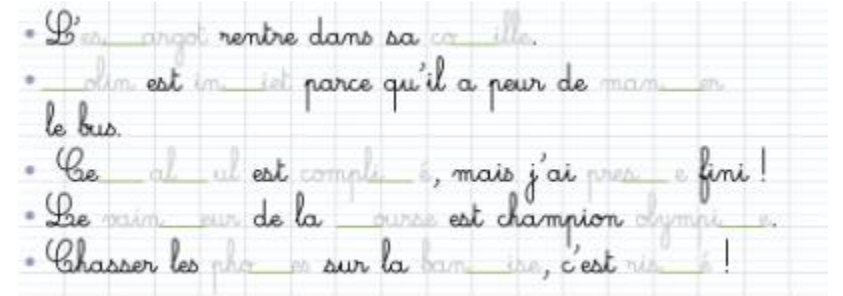 • L'es___argot rentre dans sa co___ille.
• ___olin est in___iet parce qu'il a peur de man___er
le bus.
• Ce ___al___ul est compli___é, mais j'ai pres___e fini !
• Le vain___eur de la ___ourse est champion olympi___e.
• Chasser les pho___es sur la ban___ise, c'est ris___é !